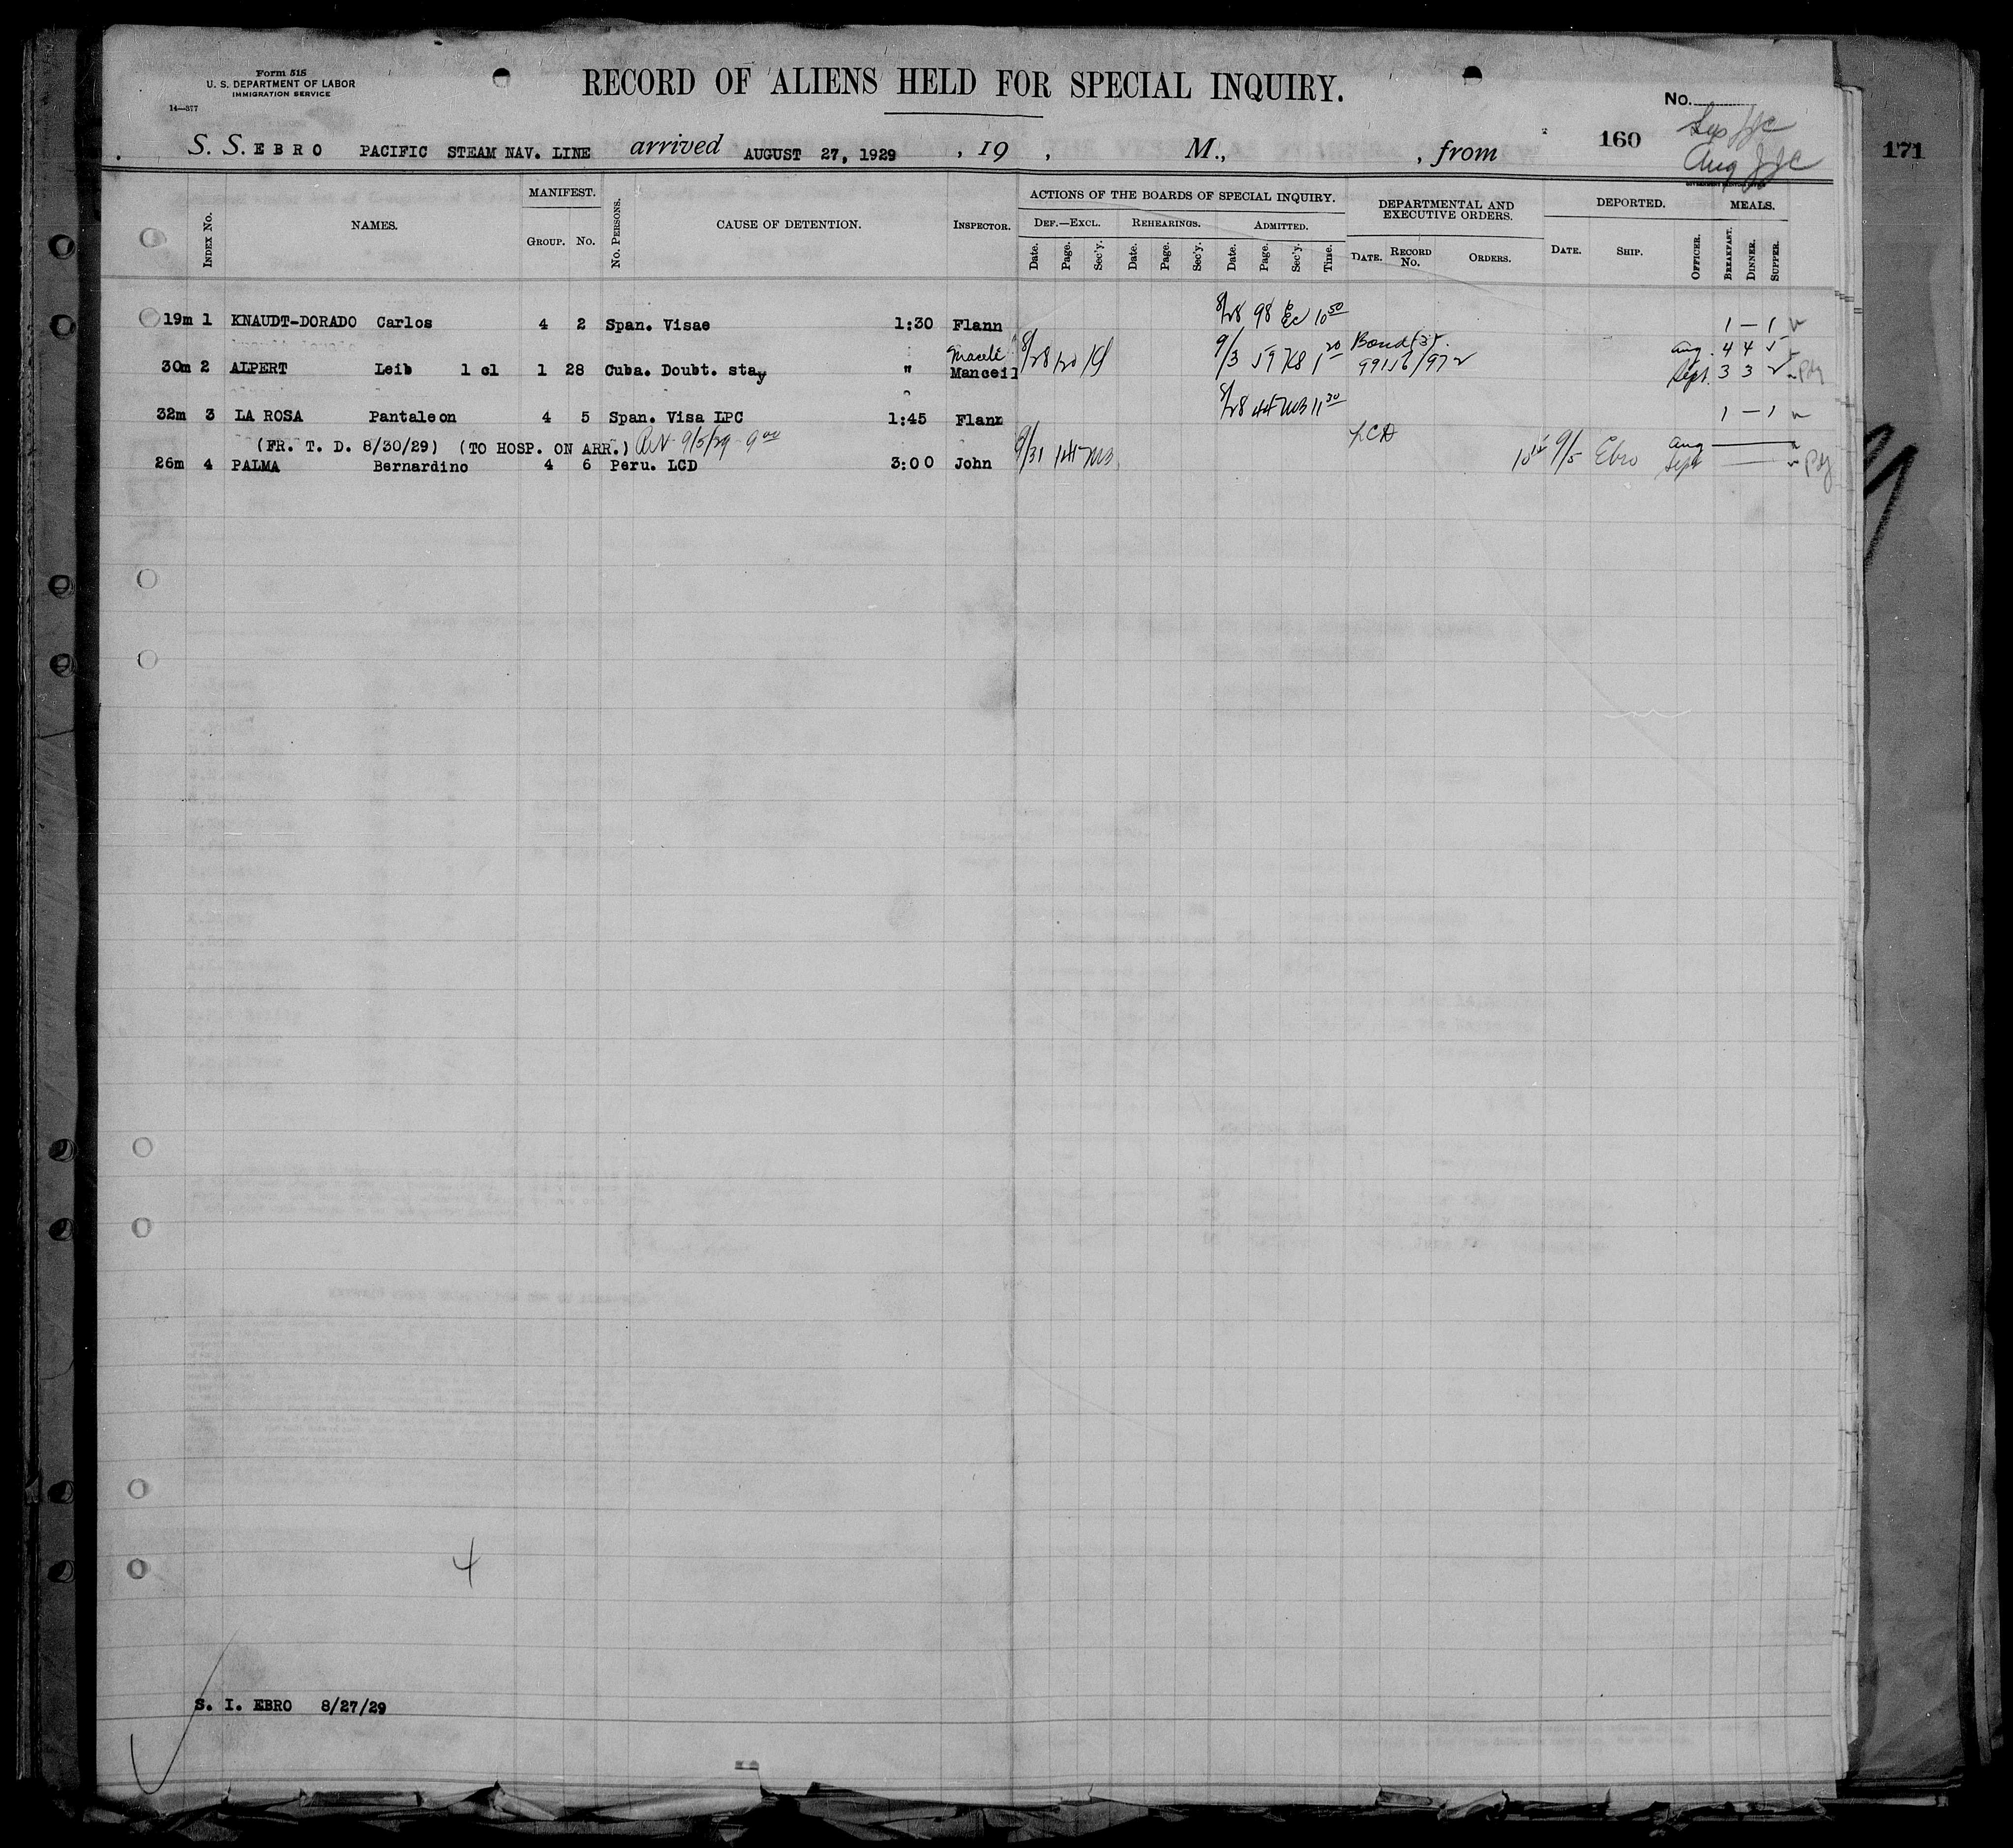 Form 515
U. S. DEPARTMENT OF LABOR
IMMIGRATION SERVICE
14—377
RECORD OF ALIENS HELD FOR SPECIAL INQUIRY.
No.
160
171
S. S. EBRO PACIFIC STEAM NAV. LINE arrived AUGUST 27, 1929 , 19 , M., , from
Aug JJC
INDEX No. NAMES. MANIFEST. GROUP. No. No. PERSONS. CAUSE OF DETENTION. INSPECTOR. ACTIONS OF THE BOARDS OF SPECIAL INQUIRY. DEPARTMENTAL AND EXECUTIVE ORDERS. DEPORTED. MEALS.
DEF.—EXCL. REHEARINGS. ADMITTED.
Date. Page. Sec'y. Date. Page. Sec'y. Date. Page. Sec'y. Time. DATE. RECORD No. ORDERS. DATE. SHIP. OFFICER. BREAKFAST. DINNER. SUPPER.
19m 1 KNAUDT-DORADO Carlos 4 2 Span. Visae 1:30 Flann 8/28 98 10 50 1 — 1
30m 2 ALPERT Leib 1 cl 1 28 Cuba. Doubt. stay " Manceil 8/28 120 9/3 59 KS 1 20 Bond 99156/972 Aug. 4 4 5
Sept. 3 3 2
32m 3 LA ROSA Pantaleon 4 5 Span. Visa LPC 1:45 Flann 8/28 44 MB 11 30 1 — 1
(FR. T. D. 8/30/29) (TO HOSP. ON ARR.) 9/5/29 - 9 00 LCD Aug
26m 4 PALMA Bernardino 4 6 Peru. LCD 3:00 John MB 9/5 Ebro Sept
4
S. I. EBRO 8/27/29